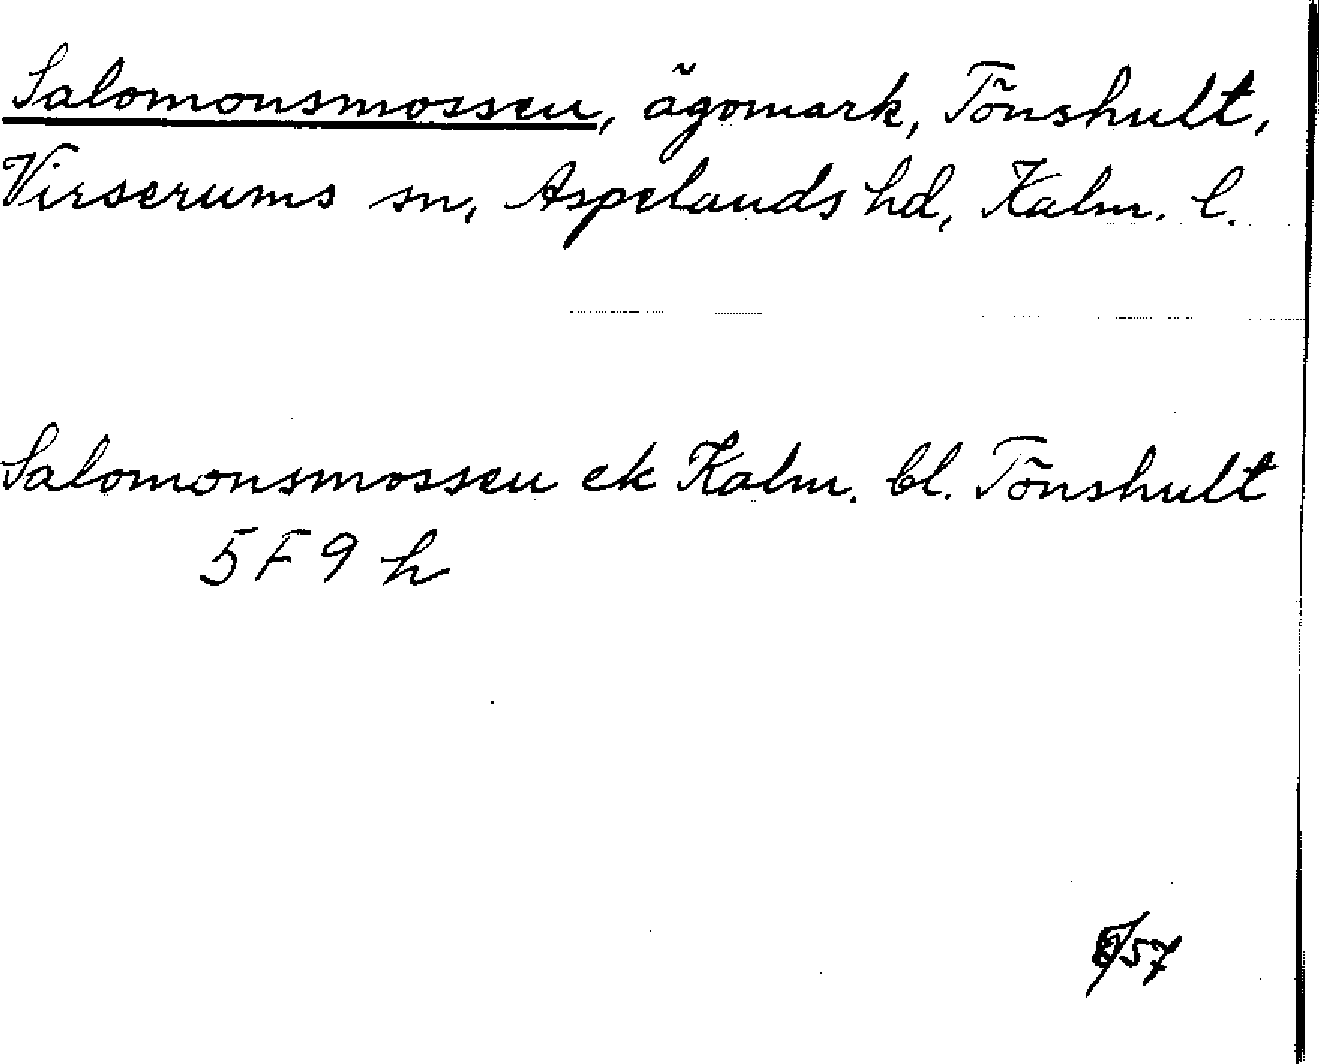 Salomonsmossen, ägomark, Tönshult,
Virserums sn, Aspelands hd, Kalm. l.
Salomonsmossen ek Kalm. bl. Tönshult
5 F 9 h